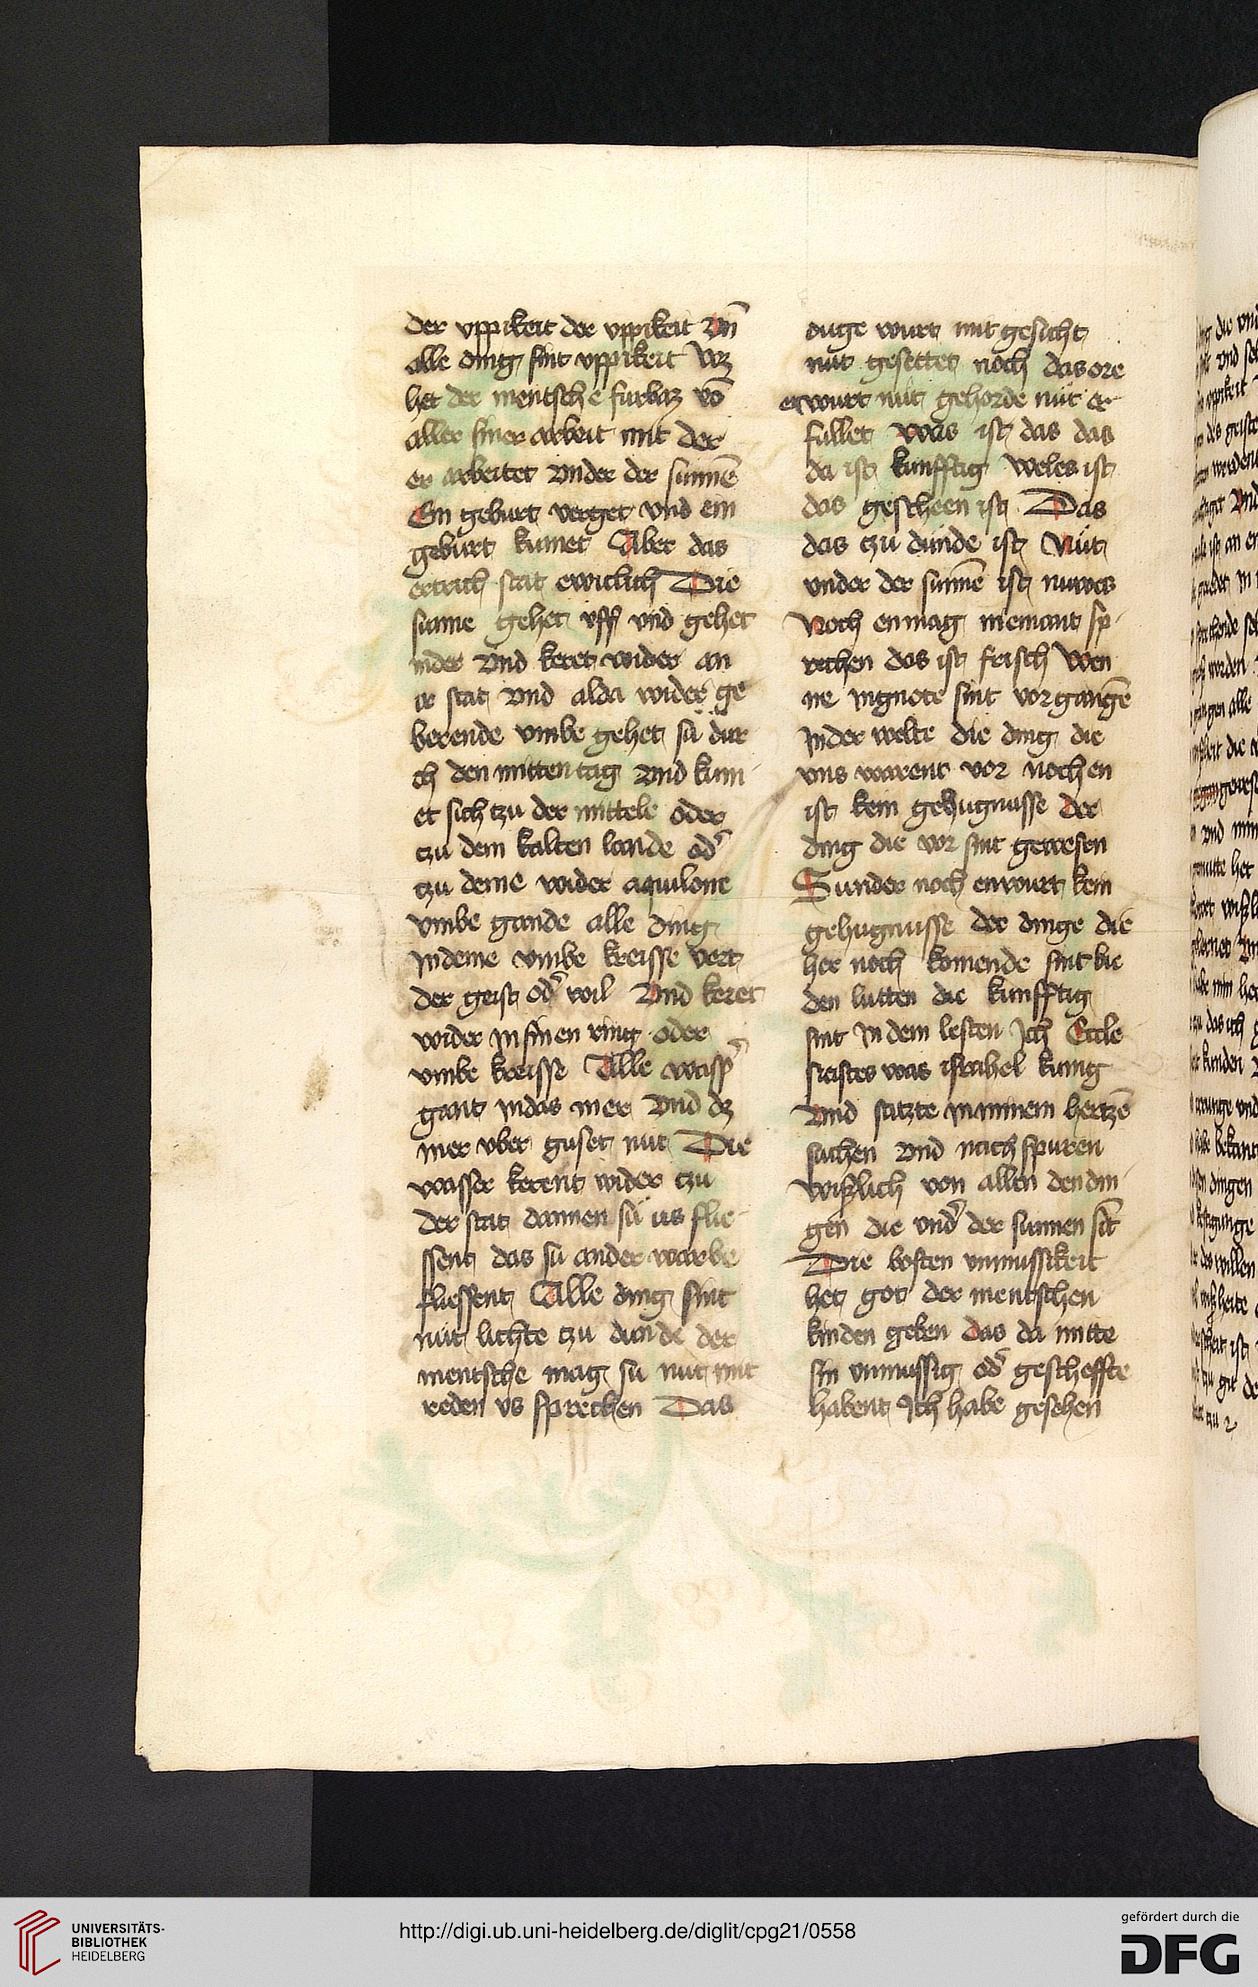 der vppikeit der vppikeit Vn̄
alle ding sint vppikeit Wz
het der mentsche furbaz vō
aller siner arbeit mit der
er arbeitet vnder der sunnē
Ein geburt verget vnd ein
geburt kumet Aber das
ertrich stat ewiclich Die
sunne gehet vff vnd gehet
nider Vnd keret wider an
ir stat Vnd alda wider ge
berende vmbe gehet sü dur
ch den mitten tag Vnd kum
et sich tzu der mittele oder
tzu dem kalten lande od᷑
tzu deme wider aquilone
vmbe gande alle ding
Jndeme vmbe kreisse vert
der geist od᷑ wil Vnd keret
wider Jn sinen ring oder
vmbe kreisse Alle wass᷑
gant Jndas mer Vnd dz
mer vber guset nüt Die
wasser kerent wider tzu
der stat dannen sü us flie
ssent das sü ander warbe
fliessent Alle ding sint
nüt lichte tzu dunde der
mentsche mag sü nüt mit
reden vs sprechen Das
ouge wurt mit gesicht
nüt gesettet noch das ore
enwurt nüt gehorde nüt er
fullet Was ist das das
da ist kunfftig Weles ist
das gescheen ist Das
das tzu dunde ist Nüt
vnder der sunnē ist nuwes
Noch enmag niemant sp
rechen das ist frisch Wen
ne Jngnote sint vorgangē
Jnder welte die ding die
vns warent vor noch en
ist kein gehugnusse der
ding die vor sint gewesen
Sunder noch enwurt kein
gehugnusse der dinge die
her noch komende sint bie
den lutten die kunfftig
sint Jn dem lesten Jch Eccle
siastes was israhel kunig
Vnd satzte Jn minem hertzē
suchen Vnd nach spuren
wißlich von allen den din
gen die vnd᷑ der sunnen sīt
Die bosten vnmussikeit
het got der mentschen
kinden geben Das da mitte
sin vnmussig od᷑ gescheffte
habent Jch habe gesehen
UNIVERSITÄTS-
BIBLIOTHEK
HEIDELBERG
http://digi.ub.uni-heidelberg.de/diglit/cpg21/0558
gefördert durch die
DFG